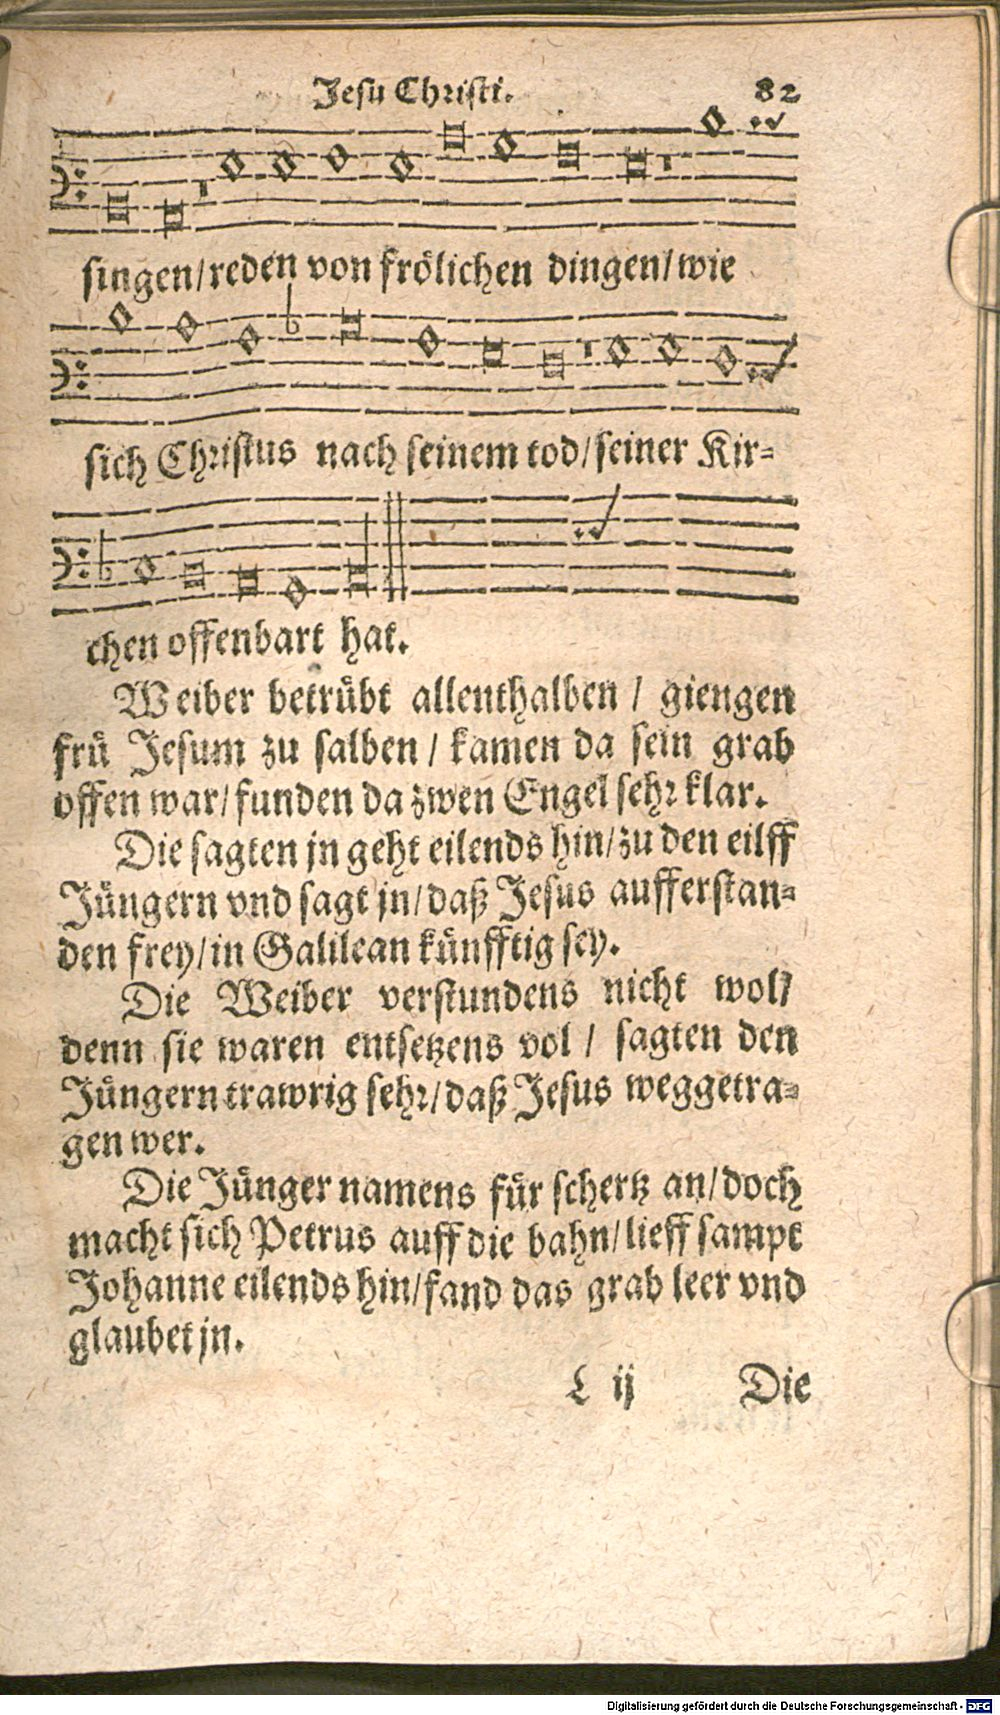 Jesu Christi. 82
singen/reden von frölichen dingen/wie
sich Christus nach seinem tod/seiner Kir=
chen offenbart hat.
Weiber betrübt allenthalben / giengen
frü Jesum zu salben / kamen da sein grab
offen war/funden da zwen Engel sehr klar.
Die sagten jn geht eilends hin/zu den eilff
Jüngern vnd sagt jn/daß Jesus aufferstan=
den frey/in Galilean künfftig sey.
Die Weiber verstundens nicht wol/
denn sie waren entsetzens vol / sagten den
Jüngern trawrig sehr/daß Jesus weggetra=
gen wer.
Die Jünger namens für schertz an/doch
macht sich Petrus auff die bahn/lieff sampt
Johanne eilends hin/fand das grab leer vnd
glaubet jn.
L ij Die
Digitalisierung gefördert durch die Deutsche Forschungsgemeinschaft - DFG